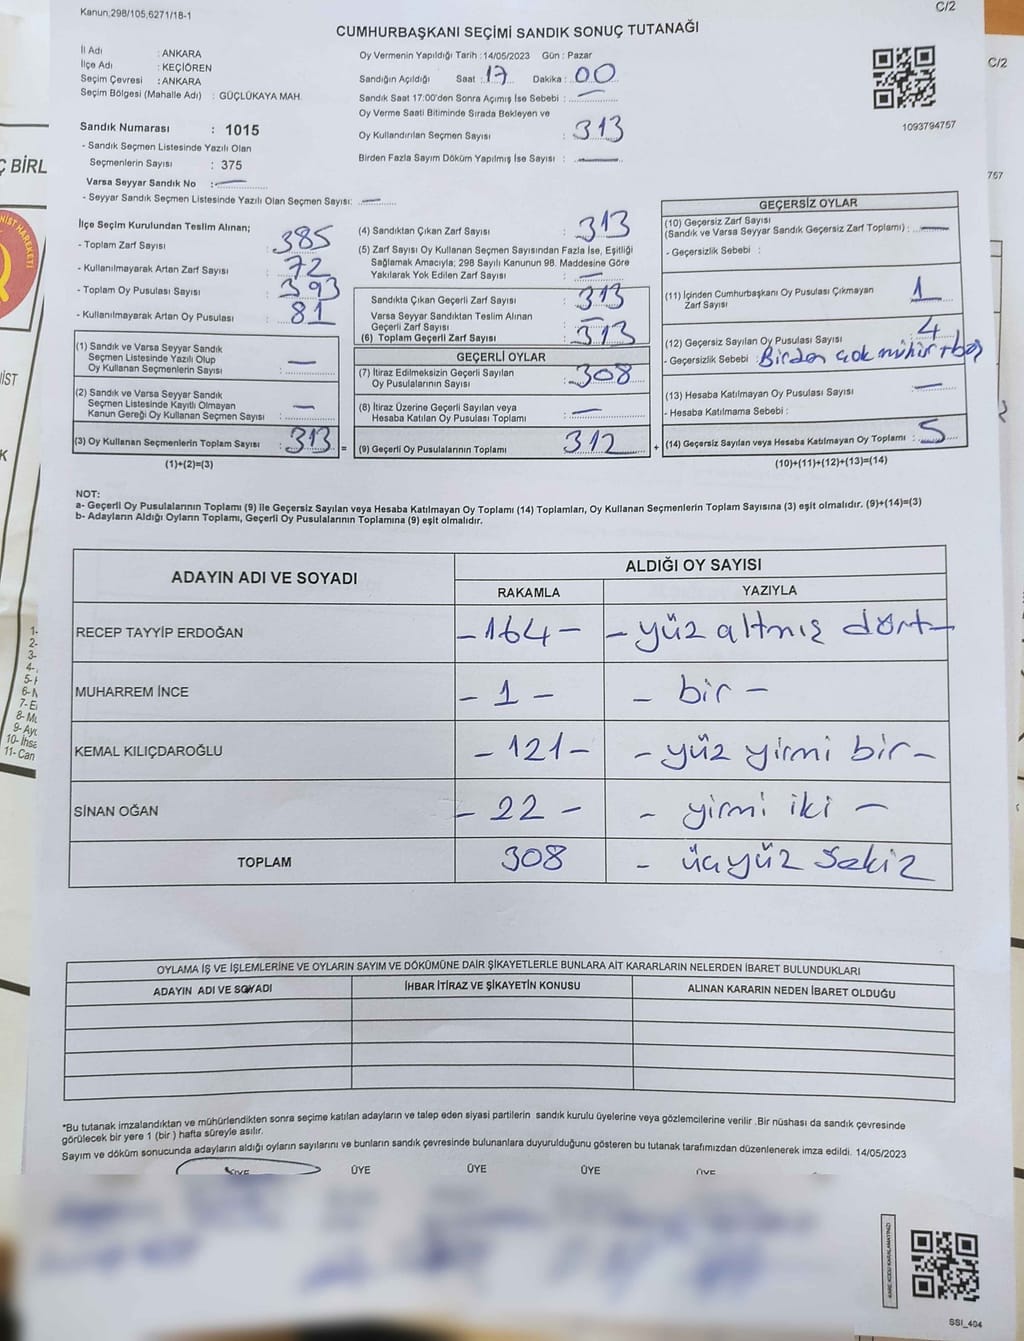 Kanun,298/105,6271/18-1
C/2
CUMHURBAŞKANI SEÇİMİ SANDIK SONUÇ TUTANAĞI
İl Adı : ANKARA
İlçe Adı : KEÇİÖREN
Seçim Çevresi : ANKARA
Seçim Bölgesi (Mahalle Adı) : GÜÇLÜKAYA MAH.
Sandık Numarası : 1015
- Sandık Seçmen Listesinde Yazılı Olan
Seçmenlerin Sayısı : 375
Varsa Seyyar Sandık No : —
- Seyyar Sandık Seçmen Listesinde Yazılı Olan Seçmen Sayısı: —
Oy Vermenin Yapıldığı Tarih : 14/05/2023 Gün : Pazar
Sandığın Açıldığı Saat : 17 Dakika : 00
Sandık Saat 17:00'den Sonra Açımış İse Sebebi : —
Oy Verme Saati Bitiminde Sırada Bekleyen ve
Oy Kullandırılan Seçmen Sayısı : 313
Birden Fazla Sayım Döküm Yapılmış İse Sayısı : —
1093794757
C/2
757
Ç BİRL
NİST HAREKETİ
İST
K
İlçe Seçim Kurulundan Teslim Alınan;
- Toplam Zarf Sayısı : 385
- Kullanılmayarak Artan Zarf Sayısı : 72
- Toplam Oy Pusulası Sayısı : 393
- Kullanılmayarak Artan Oy Pusulası : 81
(1) Sandık ve Varsa Seyyar Sandık
Seçmen Listesinde Yazılı Olup
Oy Kullanan Seçmenlerin Sayısı : —
(2) Sandık ve Varsa Seyyar Sandık
Seçmen Listesinde Kayıtlı Olmayan
Kanun Gereği Oy Kullanan Seçmen Sayısı : —
(3) Oy Kullanan Seçmenlerin Toplam Sayısı : 313 =
(1)+(2)=(3)
(4) Sandıktan Çıkan Zarf Sayısı : 313
(5) Zarf Sayısı Oy Kullanan Seçmen Sayısından Fazla İse, Eşitliği
Sağlamak Amacıyla; 298 Sayılı Kanunun 98. Maddesine Göre
Yakılarak Yok Edilen Zarf Sayısı : —
Sandıkta Çıkan Geçerli Zarf Sayısı : 313
Varsa Seyyar Sandıktan Teslim Alınan
Geçerli Zarf Sayısı : —
(6) Toplam Geçerli Zarf Sayısı : 313
GEÇERLİ OYLAR
(7) İtiraz Edilmeksizin Geçerli Sayılan
Oy Pusulalarının Sayısı : 308
(8) İtiraz Üzerine Geçerli Sayılan veya
Hesaba Katılan Oy Pusulası Toplamı : —
(9) Geçerli Oy Pusulalarının Toplamı : 312 +
GEÇERSİZ OYLAR
(10) Geçersiz Zarf Sayısı
(Sandık ve Varsa Seyyar Sandık Geçersiz Zarf Toplamı) : —
- Geçersizlik Sebebi :
(11) İçinden Cumhurbaşkanı Oy Pusulası Çıkmayan
Zarf Sayısı : 1
(12) Geçersiz Sayılan Oy Pusulası Sayısı : 4
- Geçersizlik Sebebi : Birden çok mühür + boş
(13) Hesaba Katılmayan Oy Pusulası Sayısı : —
- Hesaba Katılmama Sebebi :
(14) Geçersiz Sayılan veya Hesaba Katılmayan Oy Toplamı : 5
(10)+(11)+(12)+(13)=(14)
NOT:
a- Geçerli Oy Pusulalarının Toplamı (9) ile Geçersiz Sayılan veya Hesaba Katılmayan Oy Toplamı (14) Toplamları, Oy Kullanan Seçmenlerin Toplam Sayısına (3) eşit olmalıdır. (9)+(14)=(3)
b- Adayların Aldığı Oyların Toplamı, Geçerli Oy Pusulalarının Toplamına (9) eşit olmalıdır.
ADAYIN ADI VE SOYADI
ALDIĞI OY SAYISI
RAKAMLA YAZIYLA
RECEP TAYYİP ERDOĞAN - 164 - - yüz altmış dört -
MUHARREM İNCE - 1 - - bir -
KEMAL KILIÇDAROĞLU - 121 - - yüz yirmi bir -
SİNAN OĞAN - 22 - - yirmi iki -
TOPLAM 308 - üçyüz sekiz
1-
2-
3-
4-
5-
6-
7- E
8- Mu
9- Ayd
10- İhsa
11- Can
OYLAMA İŞ VE İŞLEMLERİNE VE OYLARIN SAYIM VE DÖKÜMÜNE DAİR ŞİKAYETLERLE BUNLARA AİT KARARLARIN NELERDEN İBARET BULUNDUKLARI
ADAYIN ADI VE SOYADI İHBAR İTİRAZ VE ŞİKAYETİN KONUSU ALINAN KARARIN NEDEN İBARET OLDUĞU
*Bu tutanak imzalandıktan ve mühürlendikten sonra seçime katılan adayların ve talep eden siyasi partilerin sandık kurulu üyelerine veya gözlemcilerine verilir .Bir nüshası da sandık çevresinde
görülecek bir yere 1 (bir ) hafta süreyle asılır.
Sayım ve döküm sonucunda adayların aldığı oyların sayılarını ve bunların sandık çevresinde bulunanlara duyurulduğunu gösteren bu tutanak tarafımızdan düzenlenerek imza edildi. 14/05/2023
ÜYE ÜYE ÜYE ÜYE ÜYE
KARE KODU KARALAMAYINIZ!
SSI_404